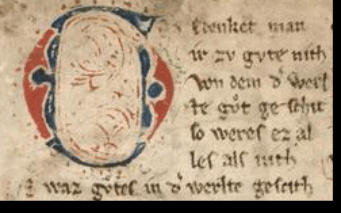 Gedenket man
ir zv gvte nith
von dem d' werl
te gůt ge schit
so weres ez al
les als nith
waz gůtes in d' werlte gescith